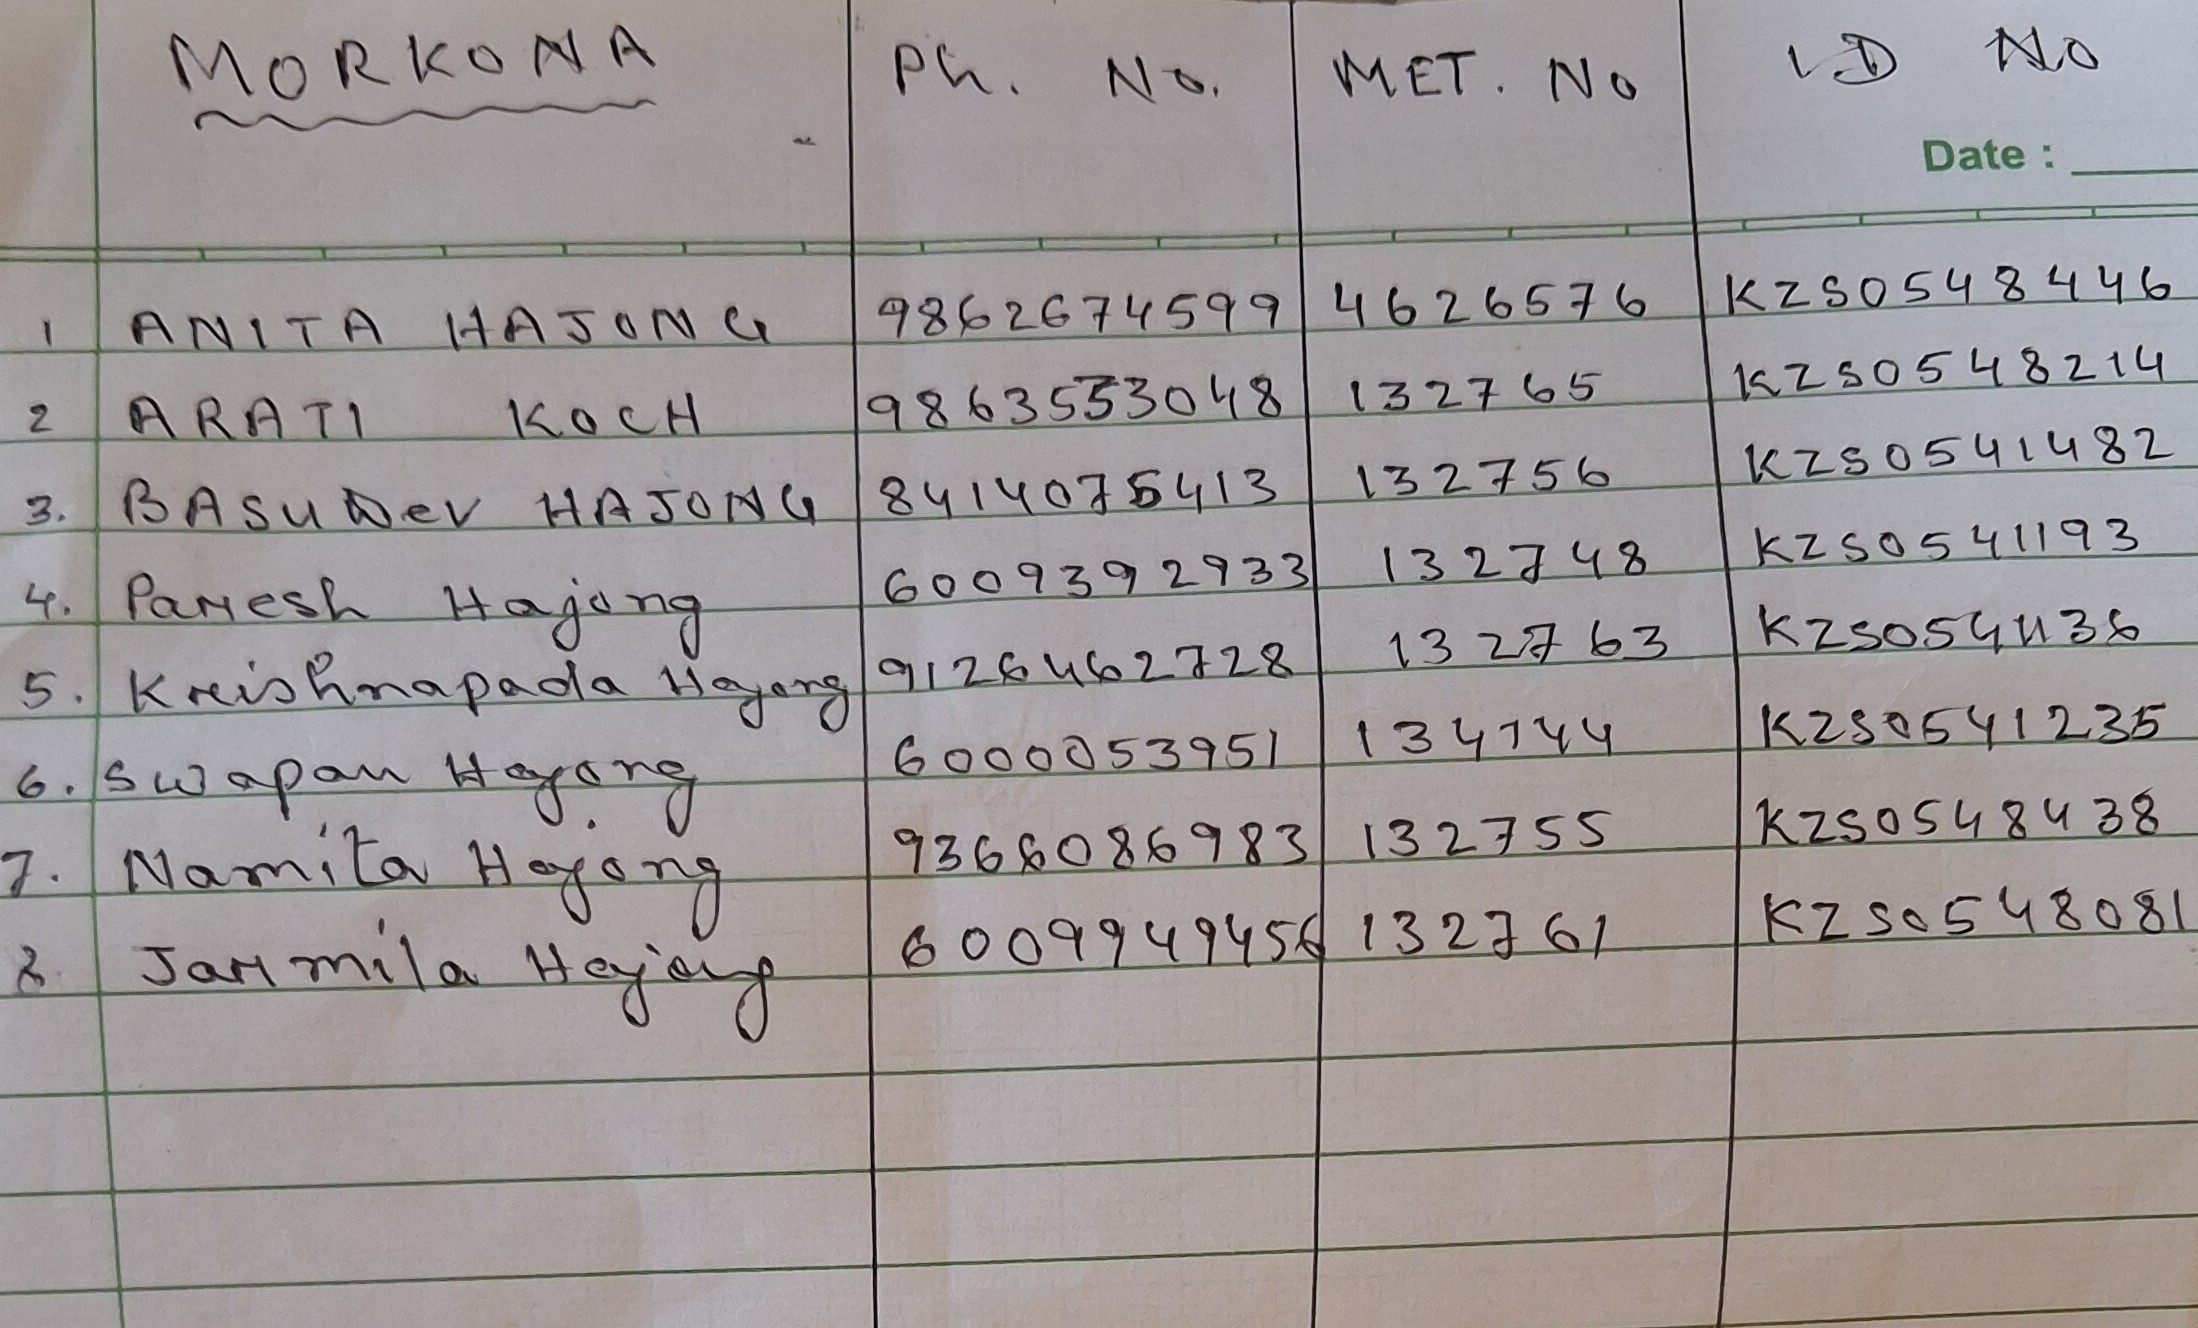 MORKONA Ph. No. MET. No ID No
Date :
1 ANITA HAJONG 9862674599 4626576 KZS0548446
2 ARATI KOCH 9863533048 132765 KZS0548214
3. BASUDev HAJONG 8414075413 132756 KZS0541482
4. Paresh Hajong 6009392933 132748 KZS0541193
5. Krishnapada Hajong 9126462728 132763 KZS0541136
6. Swapan Hajong 6000053951 134744 KZS0541235
7. Namita Hajong 9366086983 132755 KZS0548438
8 Jarmila Hajong 6009949456 132761 KZS0548081